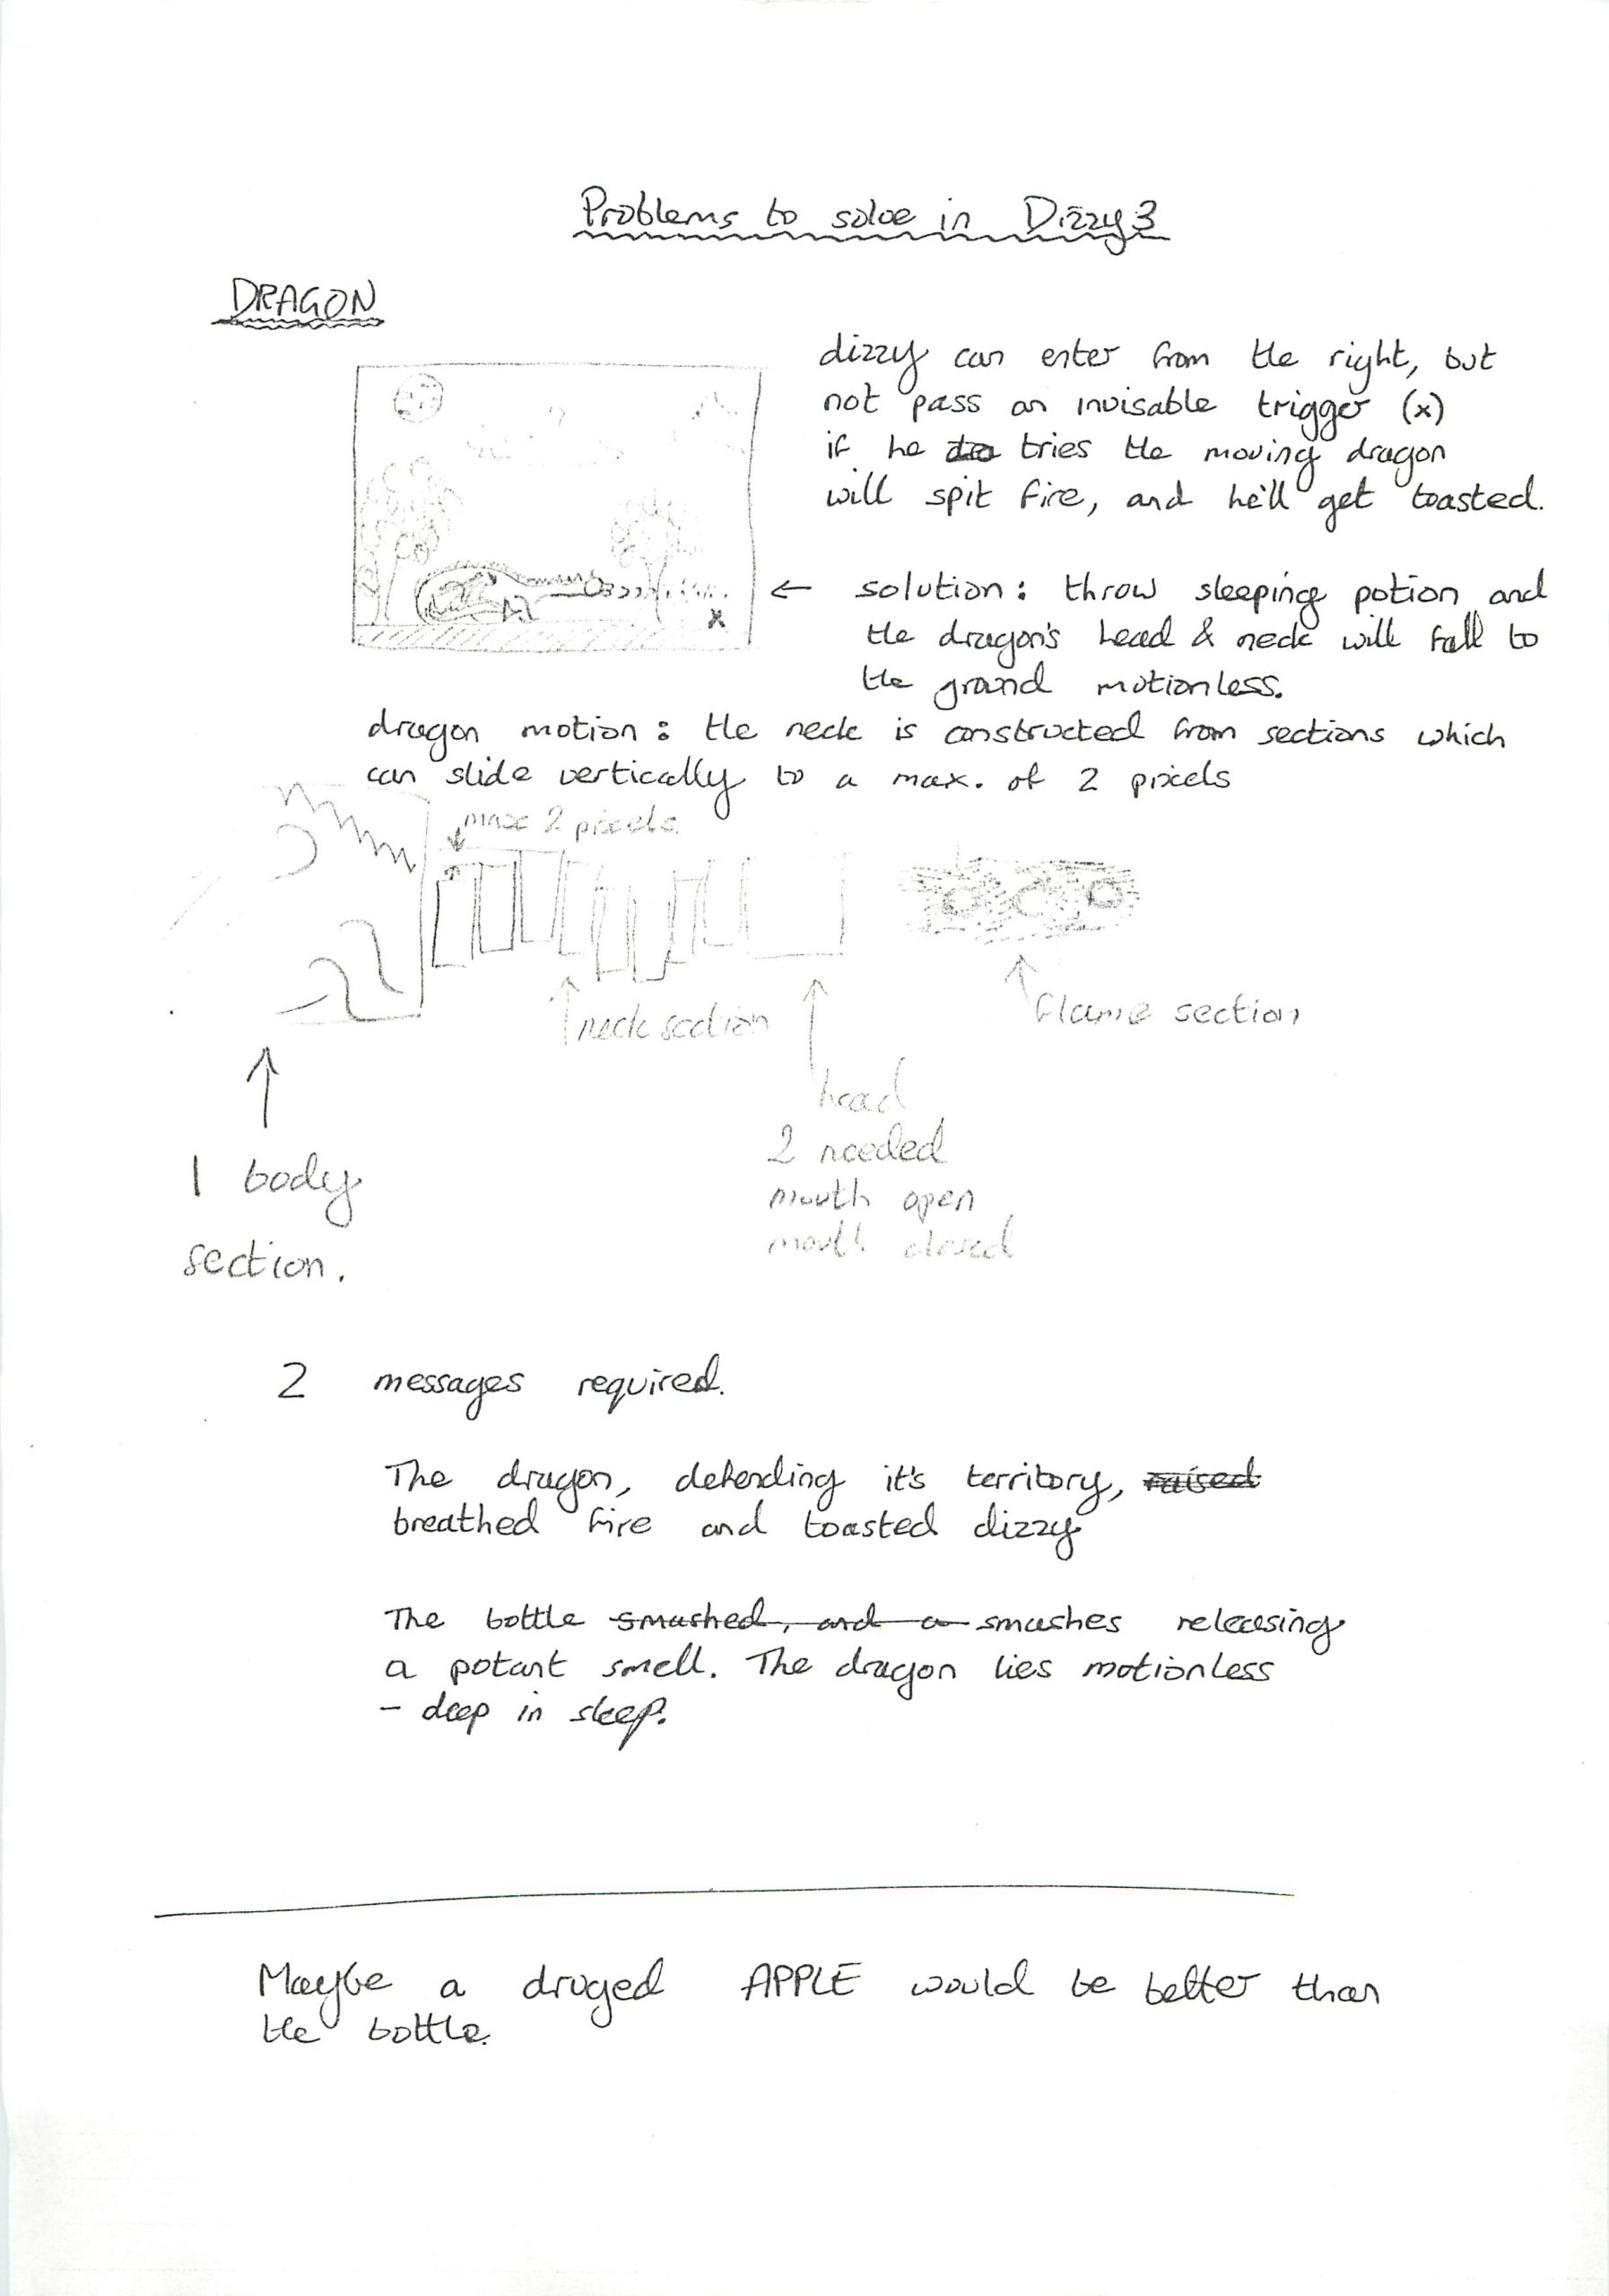 Problems to solve in Dizzy 3
DRAGON
dizzy can enter from the right, but
not pass an invisable trigger (x)
if he do tries the moving dragon
will spit fire, and he'll get toasted.
x
← solution: throw sleeping potion and
the dragon's head & neck will fall to
the ground motionless.
dragon motion: the neck is constructed from sections which
can slide vertically to a max. of 2 pixels
max 2 pixels.
neck section
flame section
head
2 needed
mouth open
mouth closed
1 body
section.
2 messages required.
The dragon, defending it's territory, raised
breathed fire and toasted dizzy
The bottle smashed, and a smashes releasing
a potant smell. The dragon lies motionless
- deep in sleep.
Maybe a druged APPLE would be better than
the bottle.